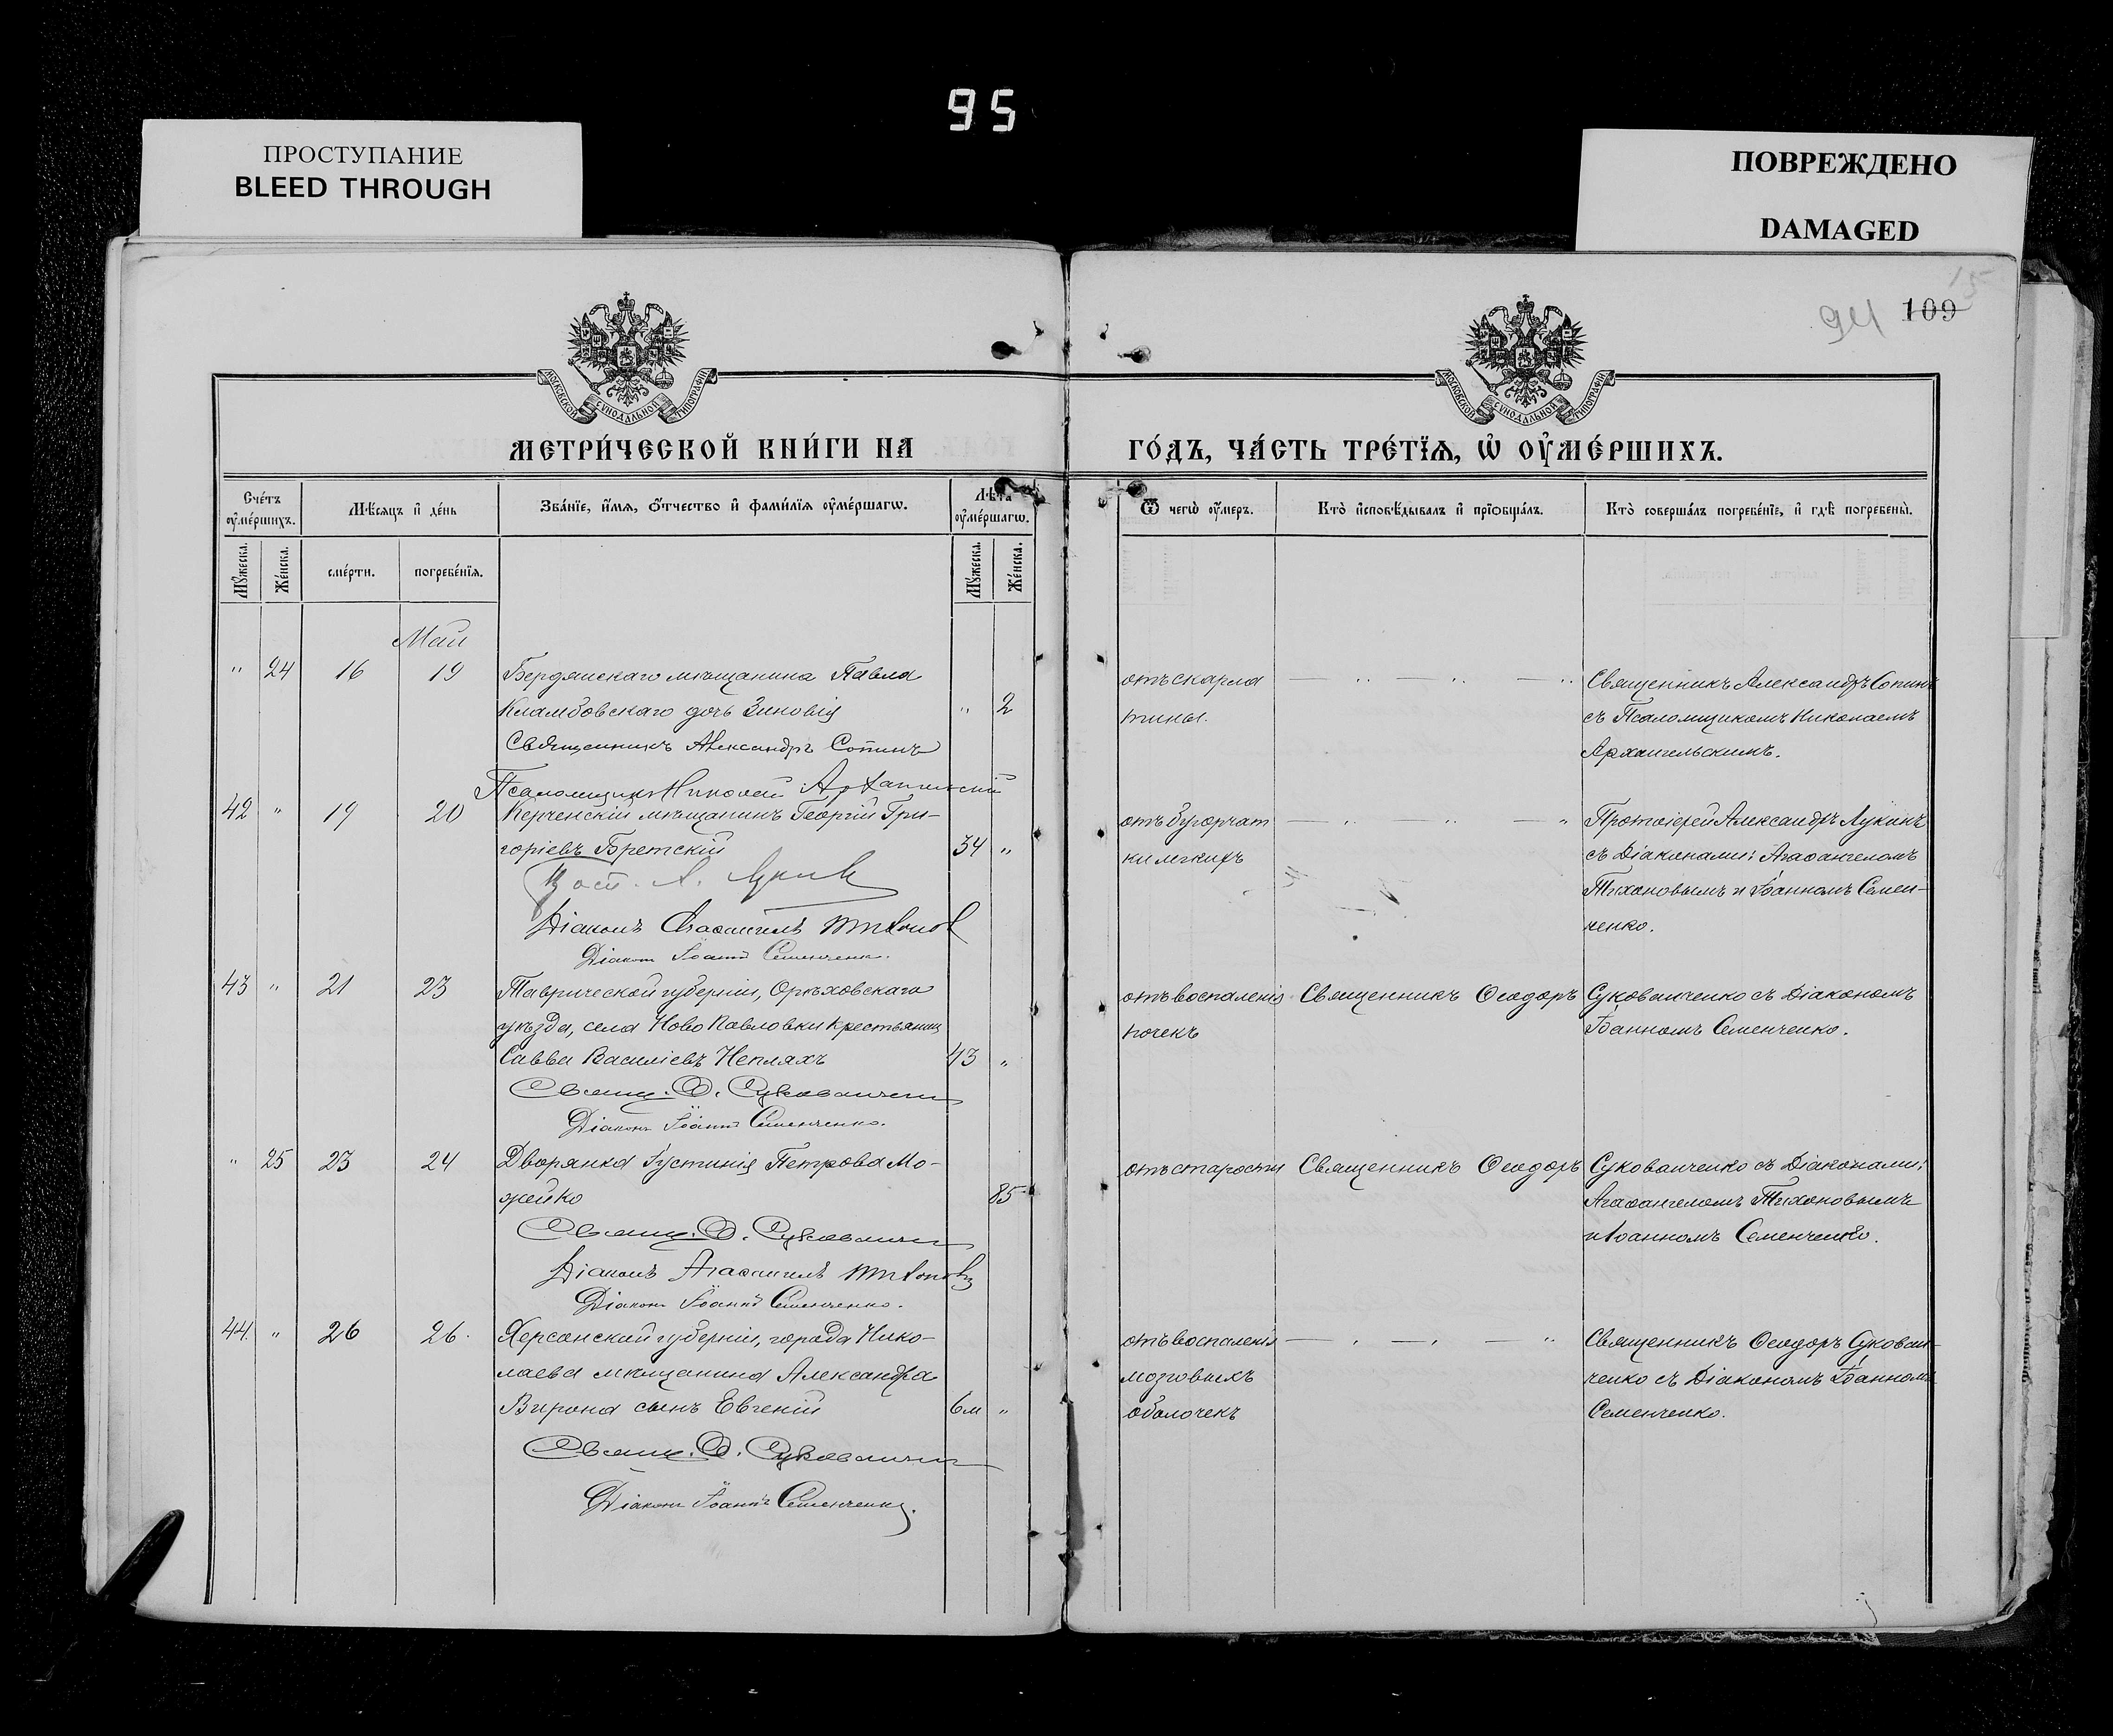 95
ПРОСТУПАНИЕ
BLEED THROUGH
ПОВРЕЖДЕНО
DAMAGED
15
94 109
МОСКОВСКОЙ СУНОДАЛЬНОЙ ТИПОГРАФІИ
МОСКОВСКОЙ СУНОДАЛЬНОЙ ТИПОГРАФІИ
МЕТРИ́ЧЕСКОЙ КНИ́ГИ НА
ГО́ДЪ, ЧА́СТЬ ТРЕ́ТІѦ, Ѡ҆ ОУ҆МЕ́РШИХЪ.
Сче́тъ оу҆ме́ршихъ.
Мѣ́сяцъ и҆ де́нь
Зва́нїе, и҆́мя, ѻ҆́тчество и҆ фами́лїя оу҆ме́ршагѡ.
Лѣ́та оу҆ме́ршагѡ.
Ѿ чегѡ̀ оу҆́меръ.
Кто̀ и҆сповѣ́дывалъ и҆ прїѡбща́лъ.
Кто̀ соверша́лъ погребе́нїе, и҆ гдѣ̀ погребены̀.
Мꙋ́жеска.
Же́нска.
сме́рти.
погребе́нїя.
Мꙋ́жеска.
Же́нска.
Май
" 24 16 19 Бердянскаго мѣщанина Павла
Кламбовскаго дочь Зиновія " 2
Священникъ Александръ Сопинъ
Псаломщикъ Николай Архангельскій
отъ скарла
тины.
Священникъ Александръ Сопинъ
съ Псаломщикомъ Николаемъ
Архангельскимъ.
42 " 19 20 Керченскій мѣщанинъ Георгій Гри-
горіевъ Бретскій 34 "
Діаконъ Агаѳангелъ Тихонов
Діаконъ Іоаннъ Семенченко.
отъ бугорчат
ки легкихъ
Протоіерей Александръ Лукинъ
съ Діаконами: Агаѳангеломъ
Тихоновымъ и Іоанномъ Семен-
ченко.
43 " 21 23 Таврической губерніи, Орѣховскаго
уѣзда, села Ново Павловки крестьянин
Савва Василіевъ Чепляхъ 43 "
Свящ. Ѳ. Сукованченко
Діаконъ Іоаннъ Семенченко.
отъ воспаленія
почекъ
Священникъ Ѳеодоръ Сукованченко съ Діакономъ
Іоанномъ Семенченко.
" 25 23 24 Дворянка Іустинія Петрова Мо-
рейко 85
Свящ. Ѳ. Сукованченко
Діаконъ Агаѳангелъ Тихоновъ
Діаконъ Іоаннъ Семенченко.
отъ старости
Священникъ Ѳеодоръ Сукованченко съ Діаконами:
Агаѳангеломъ Тихоновымъ
и Іоанномъ Семенченко.
44. " 26 26. Херсонской губерніи, города Нико-
лаева мѣщанина Александра
Вирона сынъ Евгеній 6м "
Свящ. Ѳ. Сукованченко
Діаконъ Іоаннъ Семенченко.
отъ воспаленія
мозговыхъ
оболочекъ
Священникъ Ѳеодоръ Сукован-
ченко съ Діакономъ Іоанномъ
Семенченко.